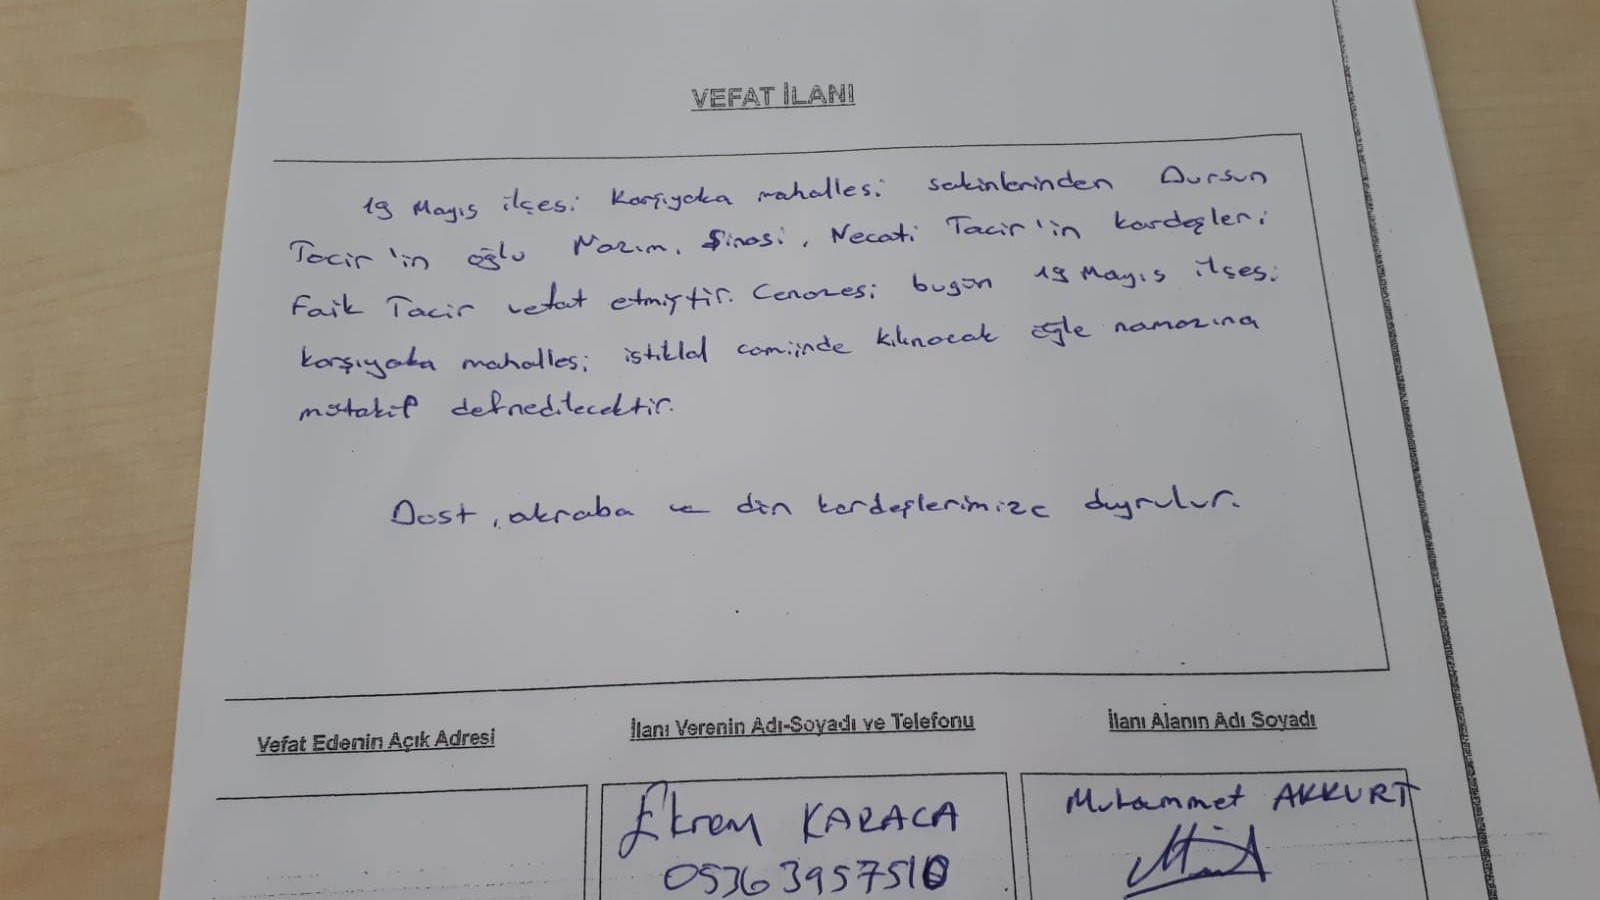 VEFAT İLANI
19 Mayıs ilçesi Karşıyaka mahallesi sakinlerinden Dursun
Tacir'in oğlu Nazım, Şinasi, Necati Tacir'in kardeşleri
Faik Tacir vefat etmiştir. Cenazesi bugün 19 Mayıs ilçesi
Karşıyaka mahallesi istiklal camiinde kılınacak öğle namazına
mütakip defnedilecektir.
Dost, akraba ve din kardeşlerimize duyrulur.
Vefat Edenin Açık Adresi
İlanı Verenin Adı-Soyadı ve Telefonu
İlanı Alanın Adı Soyadı
Ekrem KARACA
0536 3957510
Muhammet AKKURT